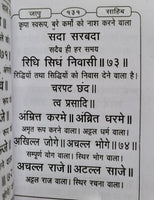 जापु १३१ साहिब
कृपा स्वरूप, बुरे कर्मों को नाश करने वाला
सदा सरबदा
सदैव ही हर समय
रिधि सिधं निवासी॥७३॥
रिद्धियों तथा सिद्धियों को निवास देने वाला है!
चरपट छंद॥
त्व प्रसादि॥
अंम्रित करमे॥अंब्रित धरमे॥
अमृत रूप करने वाला। अट्टल धर्म वाला।
अखिल्ल जोगे॥अचल्ल भोगे॥७४॥
सम्पूर्ण योग वाला। स्थिर भोग वाला।
अचल्ल राजे॥अटल्ल साजे॥
अट्टल राज वाला। स्थिर रचना वाला।